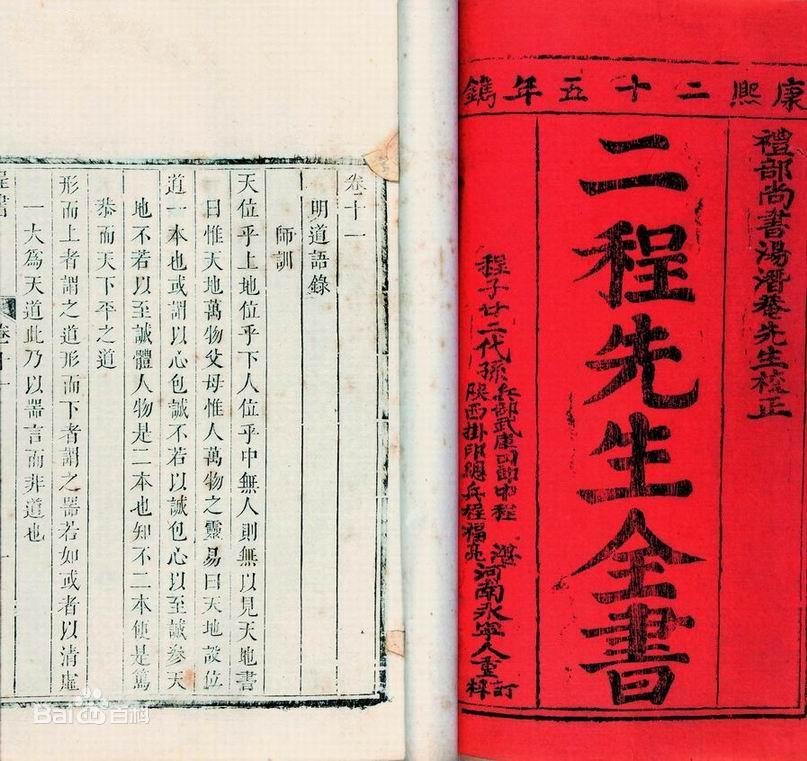 康熙二十五年鐫
禮部尚書湯潛菴先生校正
二程先生全書
程子廿二代孫
兵部武庫司郎中程
陝西掛印總兵程福亮
河南永寧人重
訂
梓
卷十一
明道語錄
師訓
天位乎上地位乎下人位乎中無人則無以見天地書
曰惟天地萬物父母惟人萬物之靈易曰天地設位
道一本也或謂以心包誠不若以誠包心以至誠參天
地不若以至誠體人物是二本也知不二本便是篤
恭而天下平之道
形而上者謂之道形而下者謂之器若如或者以清虛
一大爲天道此乃以器言而非道也
程書 卷十一 一
Bai百科